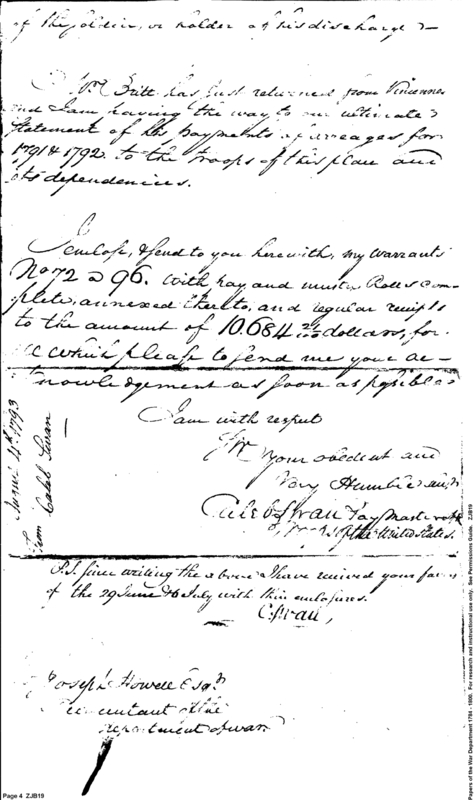 of the Soldier, or holder of his discharge &—
Mr. Britt has just returned from Vincennes
and I am having the way to our ultimate
Statement of his payments of arreages for
1791 & 1792. to the troops of this place and
its dependencies.
I enclose, & send to you herewith, my warrants
No 72 a 96. with pay and muster Rolls com-
plete, annexed thereto, and regular receipts
to the amount of 10.684 dollars, for
all which please to send me your ac-
knowledgement as soon as possible
I am with respect
Sir
your obedient and
Very Humble
Caleb Swan Paymaster
of the United States.
P.S. Since writing the above I have received your
of the 29 June & 6 July with their enclosures.
C. Swan,
4th 1793
From Caleb Swan
Joseph Howell Esqr
Accountant of the
department of war
Page 4 ZJB19
Papers of the War Department 1784 - 1800. For research and instructional use only. See Permissions Guide. ZJB19